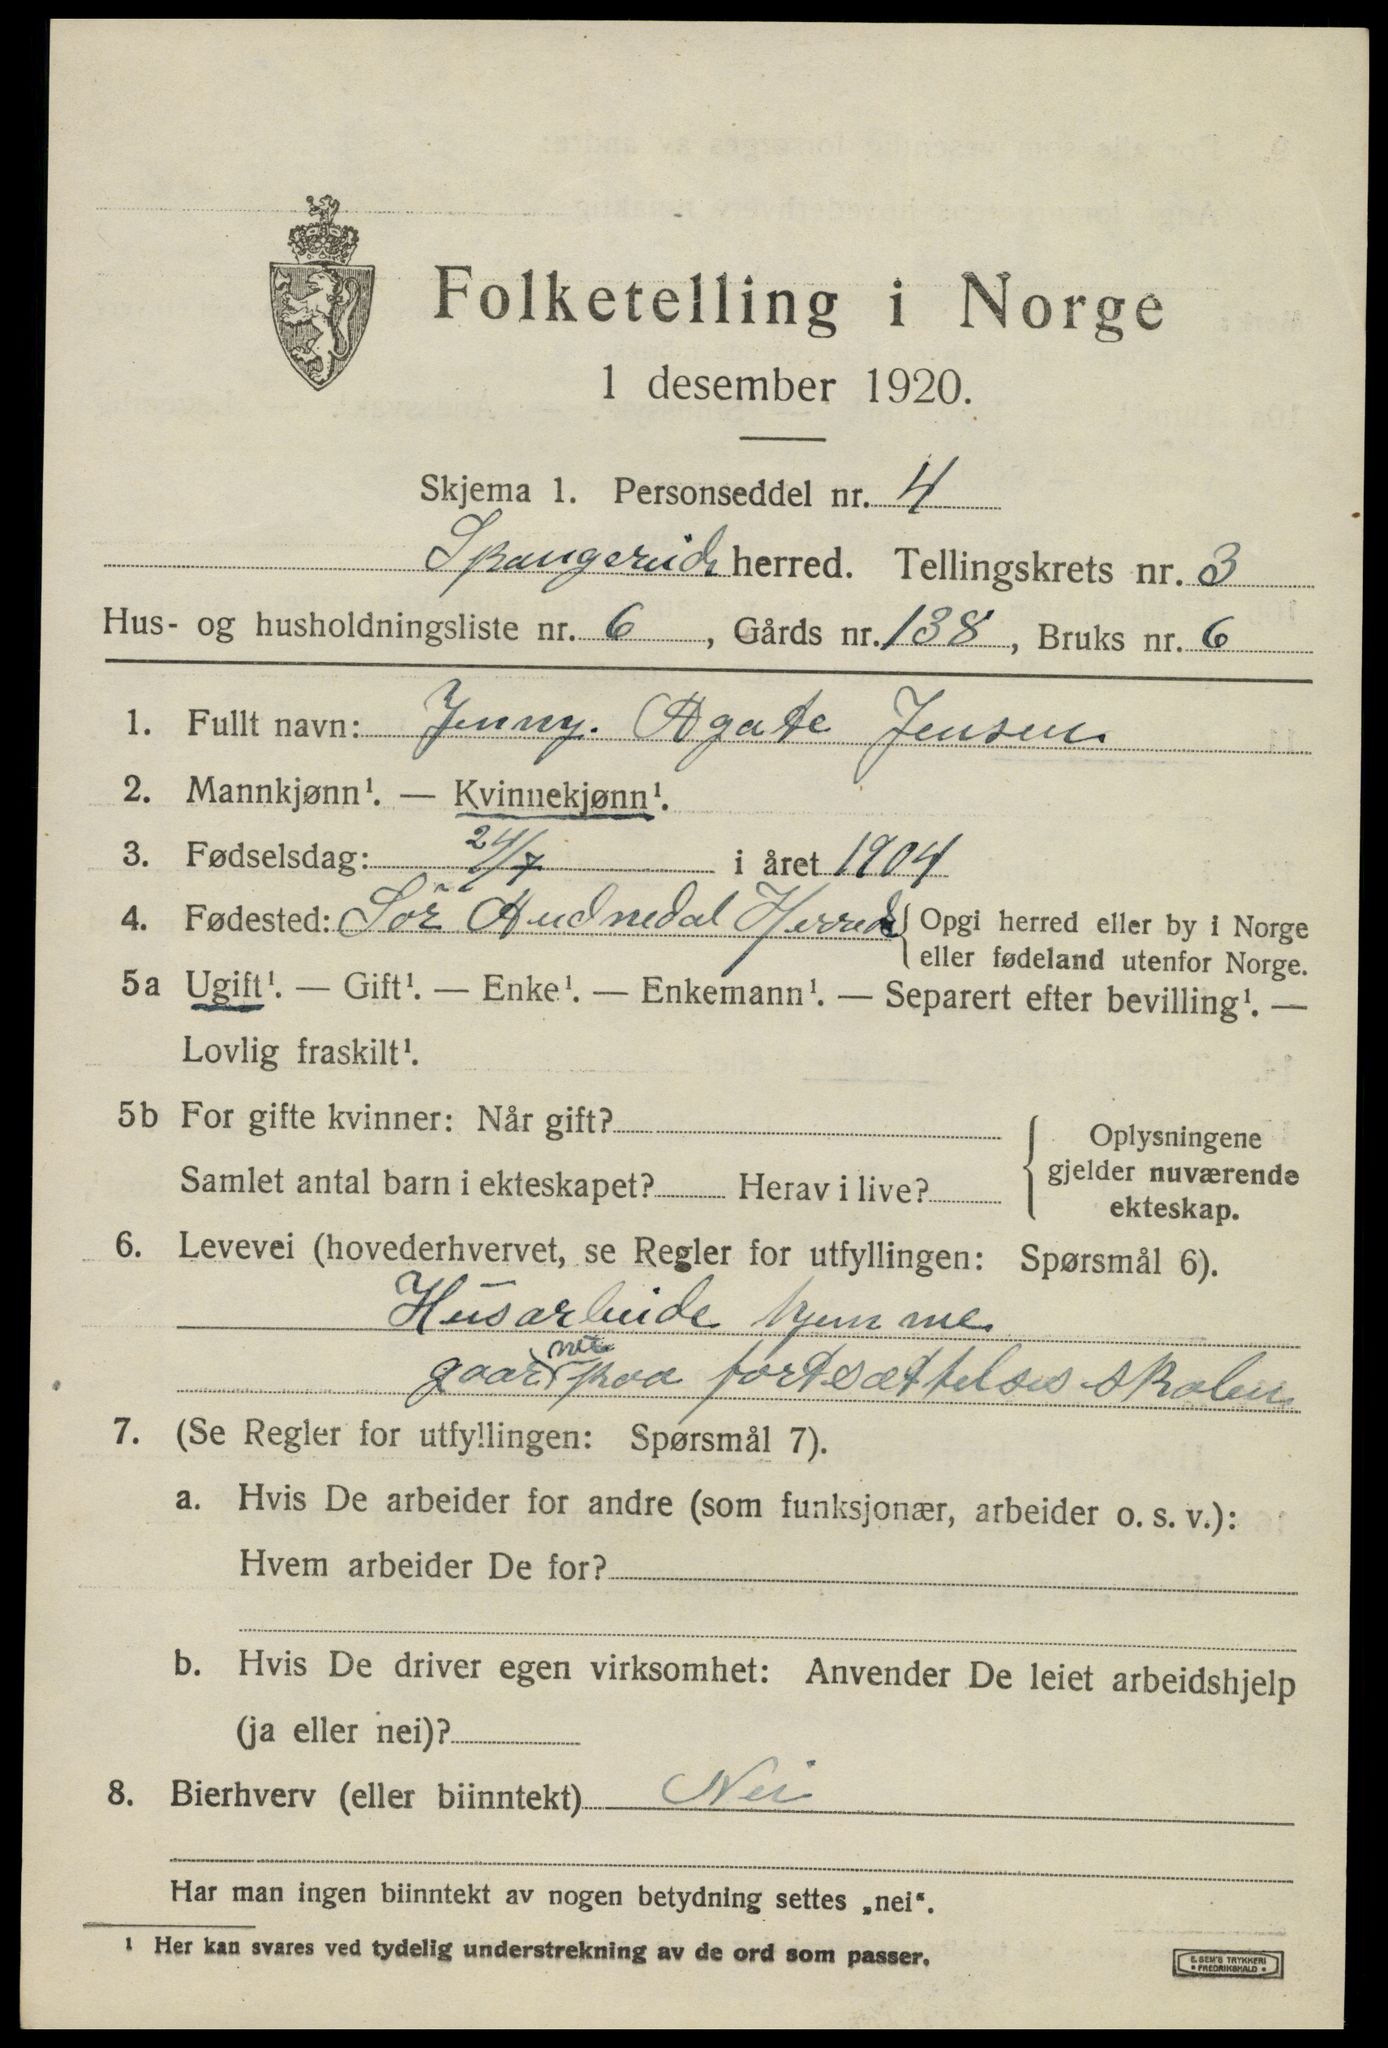 Folketelling i Norge
1 desember 1920.
Skjema 1. Personseddel nr. 4
Spangereid herred. Tellingskrets nr. 3
Hus- og husholdningsliste nr. 6, Gårds nr. 138, Bruks nr. 6
1. Fullt navn: Jenny. Agate Jensen
2. Mannkjønn¹. — Kvinnekjønn¹.
3. Fødselsdag: 24/7 i året 1904
4. Fødested: Sör Audnedal Herred { Opgi herred eller by i Norge
eller fødeland utenfor Norge.
5a Ugift¹. — Gift¹. — Enke¹. — Enkemann¹. — Separert efter bevilling¹. —
Lovlig fraskilt¹.
5b For gifte kvinner: Når gift?
Samlet antal barn i ekteskapet? Herav i live?
{ Oplysningene
gjelder nuværende
ekteskap.
6. Levevei (hovederhvervet, se Regler for utfyllingen: Spørsmål 6).
Husarbeide hjemme
gaar nu paa fortsættelses skolen
7. (Se Regler for utfyllingen: Spørsmål 7).
a. Hvis De arbeider for andre (som funksjonær, arbeider o. s. v.):
Hvem arbeider De for?
b. Hvis De driver egen virksomhet: Anvender De leiet arbeidshjelp
(ja eller nei)?
8. Bierhverv (eller biinntekt) Nei
Har man ingen biinntekt av nogen betydning settes „nei".
¹ Her kan svares ved tydelig understrekning av de ord som passer.
E. SEM'S TRYKKERI
• FREDRIKSHALD •